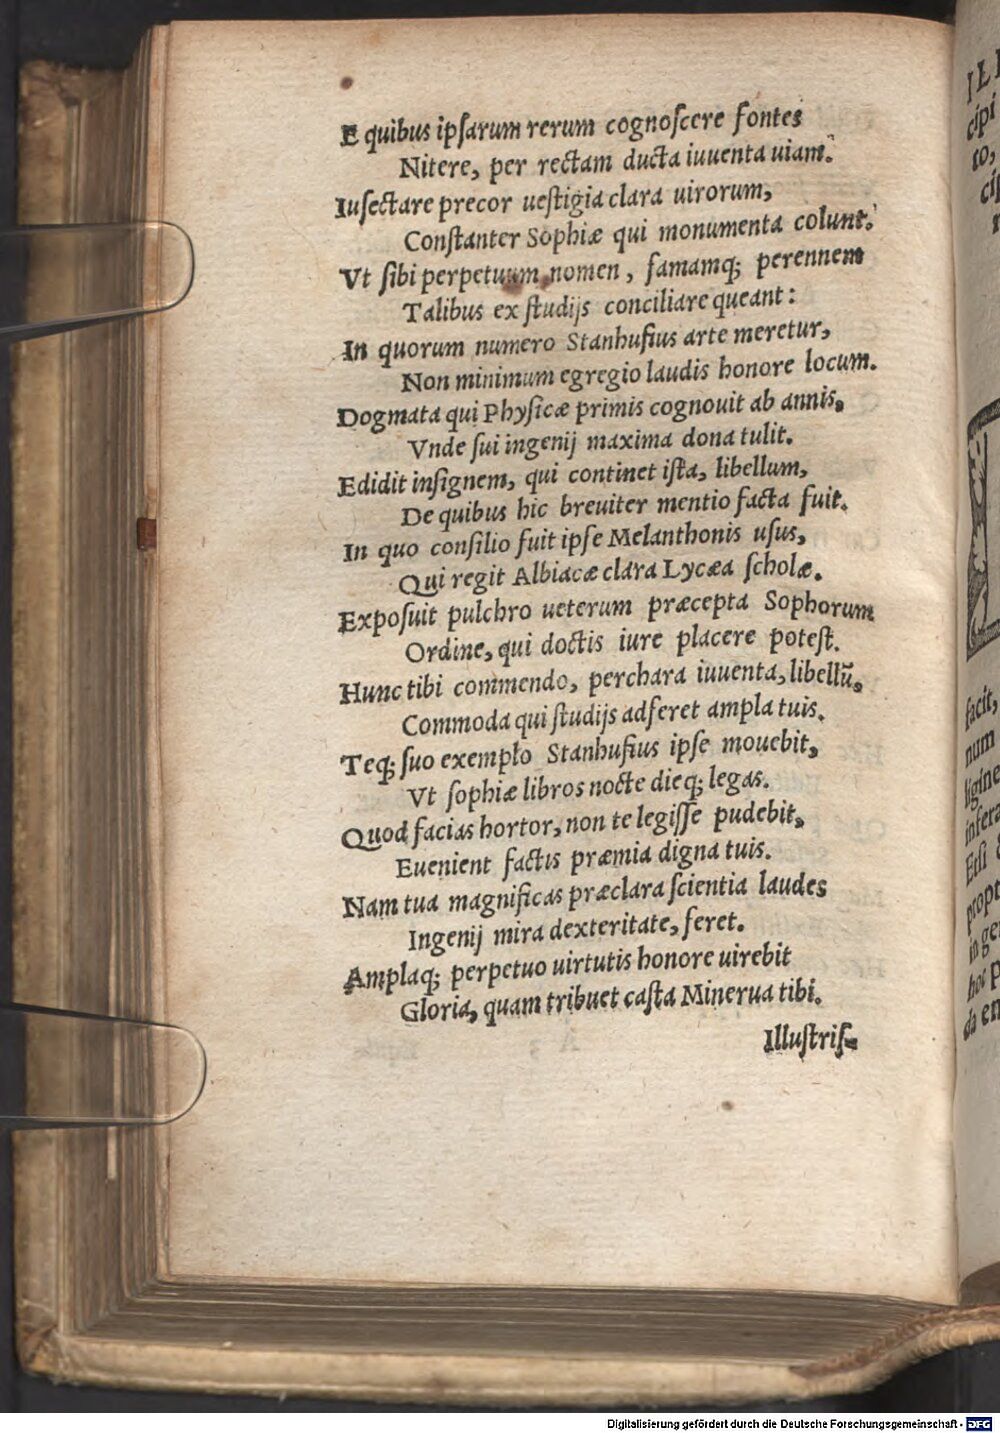 E quibus ipſarum rerum cognoſcere fontes
Nitere, per rectam ducta iuuenta uiam.
Iuſectare precor ueſtigia clara uirorum,
Conſtanter Sophiæ qui monumenta colunt.
Vt ſibi perpetuum nomen, famamq; perennem
Talibus ex ſtudijs conciliare queant:
In quorum numero Stanhufius arte meretur,
Non minimum egregio laudis honore locum.
Dogmata qui Phyſicæ primis cognouit ab annis,
Vnde ſui ingenij maxima dona tulit.
Edidit inſignem, qui continet iſta, libellum,
De quibus hic breuiter mentio facta fuit.
In quo conſilio fuit ipſe Melanthonis uſus,
Qui regit Albiacæ clara Lycæa ſcholæ.
Expoſuit pulchro ueterum præcepta Sophorum
Ordine, qui doctis iure placere poteſt.
Hunc tibi commendo, perchara iuuenta, libellũ,
Commoda qui ſtudijs adferet ampla tuis.
Teq; ſuo exemplo Stanhufius ipſe mouebit,
Vt ſophiæ libros nocte dieq; legas.
Quod facias hortor, non te legiſſe pudebit,
Euenient factis præmia digna tuis.
Nam tua magnificas præclara ſcientia laudes
Ingenij mira dexteritate, feret.
Amplaq; perpetuo uirtutis honore uirebit
Gloria, quam tribuet caſta Minerua tibi.
Illuſtriſ-
cipi
to,
facit,
num
ligine
infera
Etſi
propt
in ge
hoc p
da en
Digitalisierung gefördert durch die Deutsche Forschungsgemeinschaft - DFG